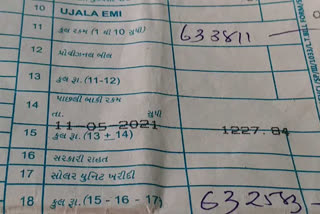 10 UJALA EMI
11 કુલ રકમ (1 થી 10 સુધી) 633811
12 પ્રોવીઝનલ બીલ
13 કુલ રૂા. (11-12)
14 પાછલી બાકી રકમ
તા. સુધી
11-05-2021 1227.84
15 કુલ રૂા. (13 + 14)
16 સરકારી રાહત
17 સોલર યુનિટ ખરીદી
18 કુલ રૂા. (15 - 16 - 17)